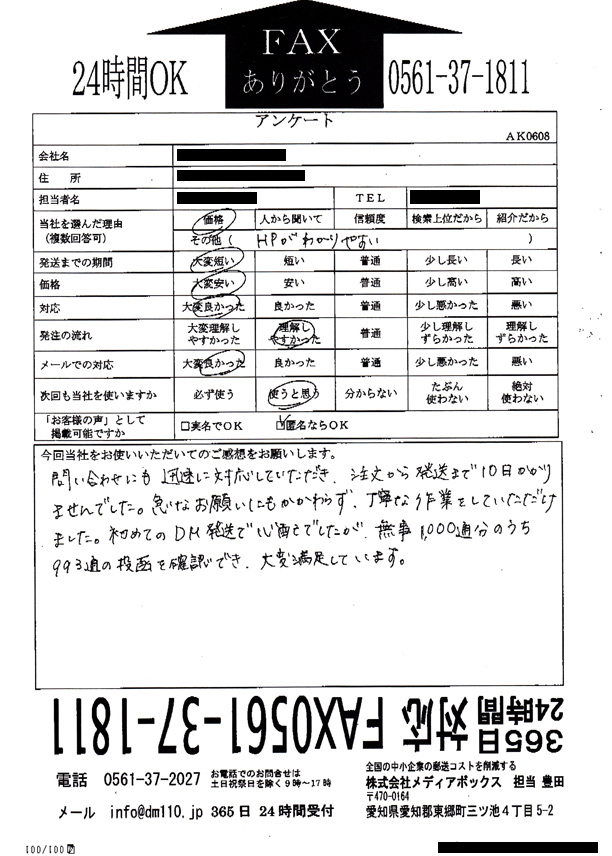 FAX
ありがとう
24時間OK
0561-37-1811
アンケート
AK0608
会社名
住 所
担当者名 TEL
当社を選んだ理由 価格 人から聞いて 信頼度 検索上位だから 紹介だから
(複数回答可) その他 ( HPがわかりやすい )
発送までの期間 大変短い 短い 普通 少し長い 長い
価格 大変安い 安い 普通 少し高い 高い
対応 大変良かった 良かった 普通 少し悪かった 悪い
発注の流れ 大変理解しやすかった 理解しやすかった 普通 少し理解しずらかった 理解しずらかった
メールでの対応 大変良かった 良かった 普通 少し悪かった 悪い
次回も当社を使いますか 必ず使う 使うと思う 分からない たぶん使わない 絶対使わない
「お客様の声」として
掲載可能ですか □実名でOK ☑匿名ならOK
今回当社をお使いいただいてのご感想をお願いします。
問い合わせにも 迅速に対応していただき、注文から発送まで10日かかり
ませんでした。急なお願いにもかかわらず、丁寧な作業をしていただけ
ました。初めてのDM発送で心配でしたが、無事1,000通分のうち
993通の投函を確認でき、大変満足しています。
365日 24時間 対応 FAX0561-37-1811
電話 0561-37-2027 お電話でのお問合せは
土日祝祭日を除く9時~17時
メール info@dm110.jp 365日 24時間受付
全国の中小企業の郵送コストを削減する
株式会社メディアボックス 担当 豊田
〒470-0164
愛知県愛知郡東郷町三ツ池4丁目5-2
100/100